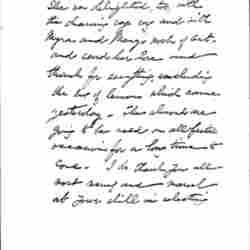 She was delighted, too, with
the charming cap and with
Myra and Margo's book of cats
and sends her love and
thanks for everything including
the box of lemons which came
yesterday. The almonds are
going to be used on all festive
occasions for a long time to
come. I do thank you all
most and
at your skill in selecting